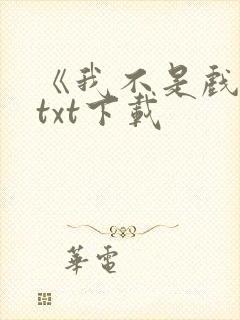 《我不是戲
txt下載
華電